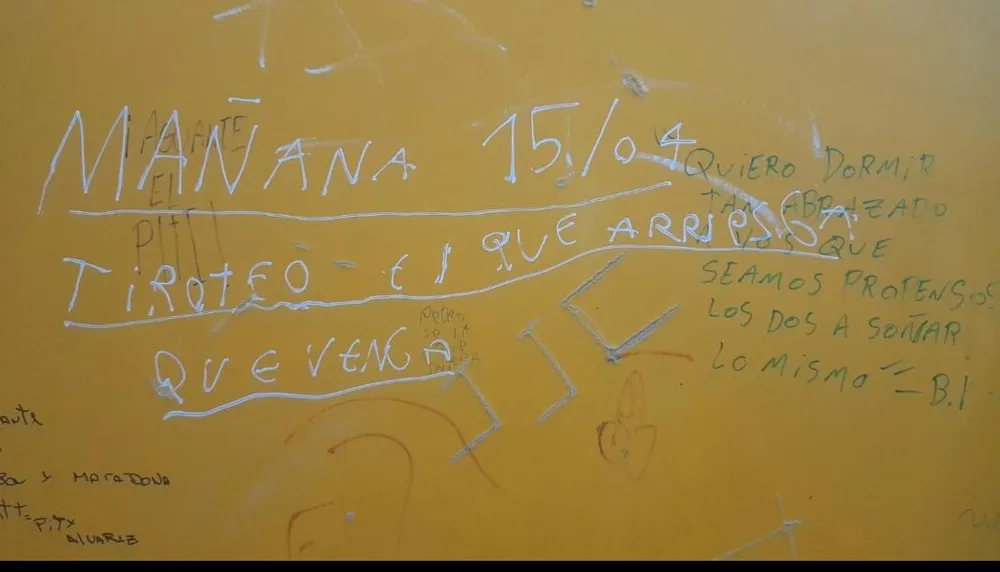 MAÑANA 15/04
TiROTEO El QUE ARRIESGA
QUE VENGA
AGUANTE
EL
PITI
QUIERO DORMIR
TAN ABRAZADO
A VOS QUE
SEAMOS PROPENSOS
LOS DOS A SOÑAR
LO MISMO = B.I
Y MARADONA
PITY
ALVAREZ